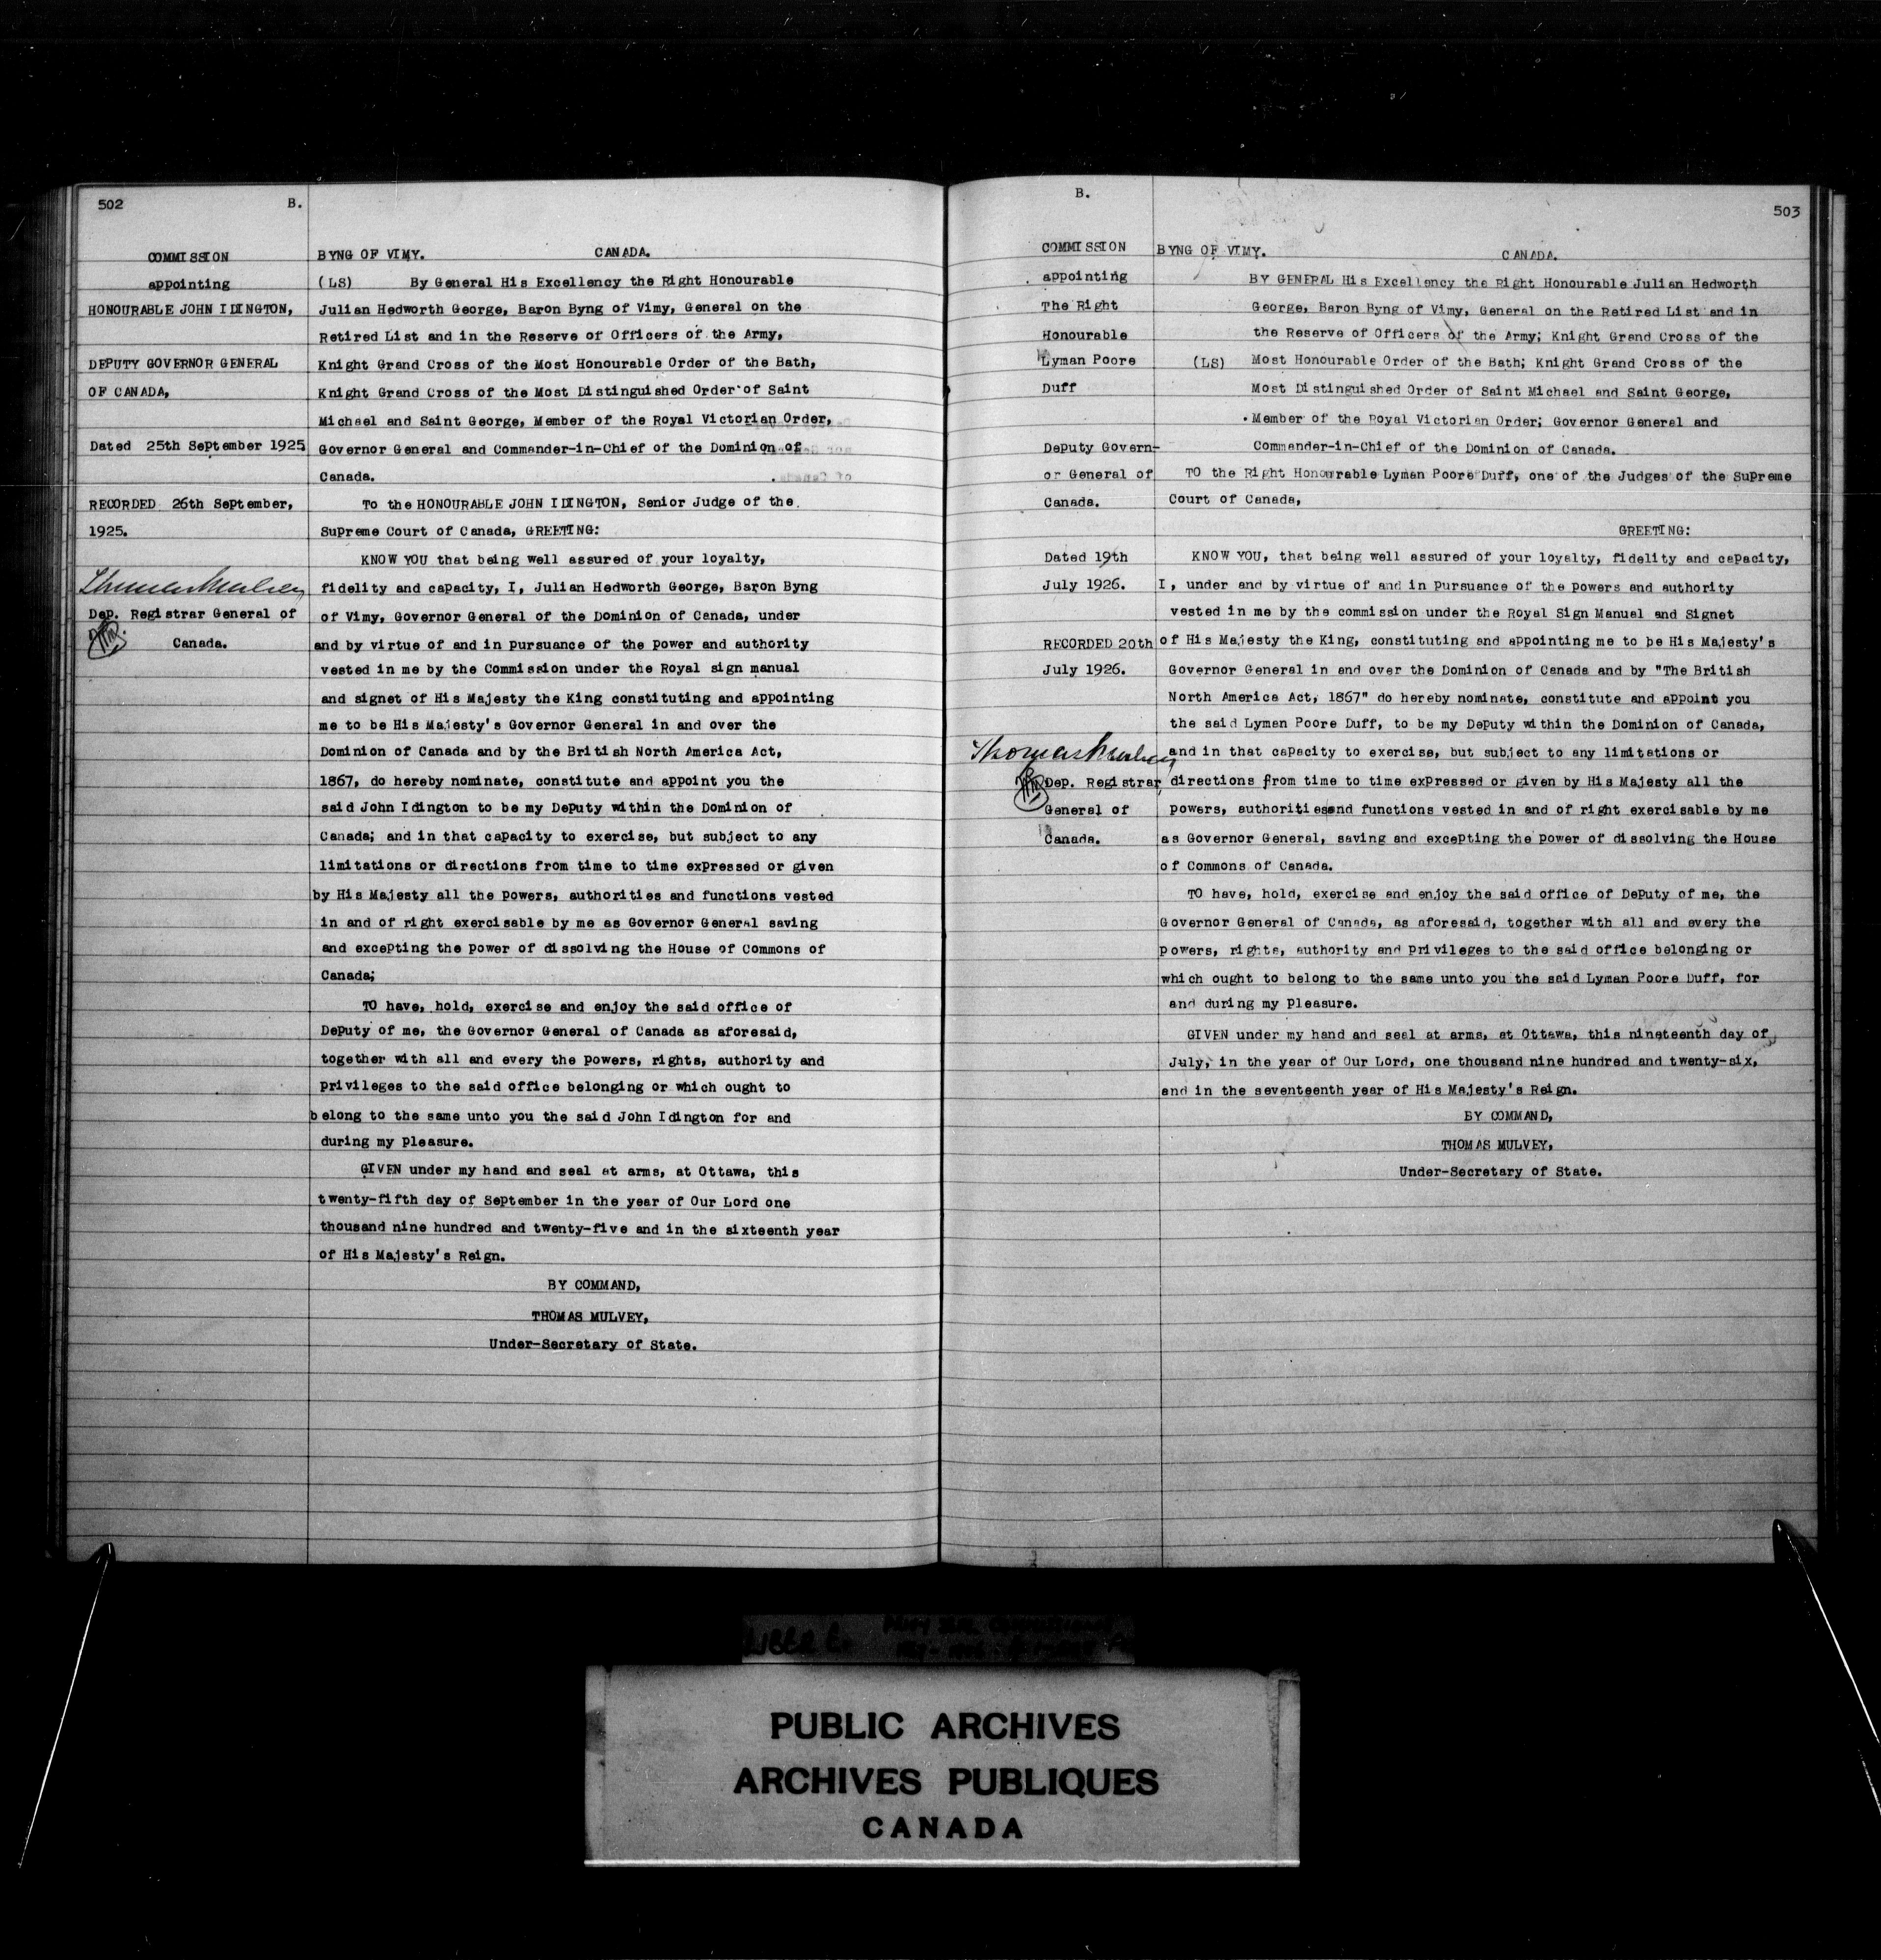 502 B.
COMMISSION
appointing
HONOURABLE JOHN IDINGTON,
DEPUTY GOVERNOR GENERAL
OF CANADA,
Dated 25th September 1925
RECORDED 26th September,
1925.
Thomas Mulvey
Dep. Registrar General of
Canada.
BYNG OF VIMY. CANADA.
(LS) By General His Excellency the Right Honourable
Julian Hedworth George, Baron Byng of Vimy, General on the
Retired List and in the Reserve of Officers of the Army,
Knight Grand Cross of the Most Honourable Order of the Bath,
Knight Grand Cross of the Most Distinguished Order of Saint
Michael and Saint George, Member of the Royal Victorian Order,
Governor General and Commander-in-Chief of the Dominion of
Canada.
To the HONOURABLE JOHN IDINGTON, Senior Judge of the
Supreme Court of Canada, GREETING:
KNOW YOU that being well assured of your loyalty,
fidelity and capacity, I, Julian Hedworth George, Baron Byng
of Vimy, Governor General of the Dominion of Canada, under
and by virtue of and in pursuance of the power and authority
vested in me by the Commission under the Royal sign manual
and signet of His Majesty the King constituting and appointing
me to be His Majesty's Governor General in and over the
Dominion of Canada and by the British North America Act,
1867, do hereby nominate, constitute and appoint you the
said John Idington to be my Deputy within the Dominion of
Canada; and in that capacity to exercise, but subject to any
limitations or directions from time to time expressed or given
by His Majesty all the powers, authorities and functions vested
in and of right exercisable by me as Governor General saving
and excepting the power of dissolving the House of Commons of
Canada;
TO have, hold, exercise and enjoy the said office of
Deputy of me, the Governor General of Canada as aforesaid,
together with all and every the powers, rights, authority and
privileges to the said office belonging or which ought to
belong to the same unto you the said John Idington for and
during my pleasure.
GIVEN under my hand and seal at arms, at Ottawa, this
twenty-fifth day of September in the year of Our Lord one
thousand nine hundred and twenty-five and in the sixteenth year
of His Majesty's Reign.
BY COMMAND,
THOMAS MULVEY,
Under-Secretary of State.
B. 503
COMMISSION
appointing
The Right
Honourable
Lyman Poore
Duff
Deputy Govern-
or General of
Canada.
Dated 19th
July 1926.
RECORDED 20th
July 1926.
Thomas Mulvey
Dep. Registrar
General of
Canada.
BYNG OF VIMY. CANADA.
BY GENERAL His Excellency the Right Honourable Julian Hedworth
George, Baron Byng of Vimy, General on the Retired List and in
the Reserve of Officers of the Army; Knight Grand Cross of the
(LS) Most Honourable Order of the Bath; Knight Grand Cross of the
Most Distinguished Order of Saint Michael and Saint George,
Member of the Royal Victorian Order; Governor General and
Commander-in-Chief of the Dominion of Canada.
TO the Right Honourable Lyman Poore Duff, one of the Judges of the Supreme
Court of Canada,
GREETING:
KNOW YOU, that being well assured of your loyalty, fidelity and capacity,
I, under and by virtue of and in pursuance of the powers and authority
vested in me by the commission under the Royal Sign Manual and Signet
of His Majesty the King, constituting and appointing me to be His Majesty's
Governor General in and over the Dominion of Canada and by "The British
North America Act, 1867" do hereby nominate, constitute and appoint you
the said Lyman Poore Duff, to be my Deputy within the Dominion of Canada,
and in that capacity to exercise, but subject to any limitations or
directions from time to time expressed or given by His Majesty all the
powers, authoritiesand functions vested in and of right exercisable by me
as Governor General, saving and excepting the power of dissolving the House
of Commons of Canada.
TO have, hold, exercise and enjoy the said office of Deputy of me, the
Governor General of Canada, as aforesaid, together with all and every the
powers, rights, authority and privileges to the said office belonging or
which ought to belong to the same unto you the said Lyman Poore Duff, for
and during my pleasure.
GIVEN under my hand and seal at arms, at Ottawa, this nineteenth day of
July, in the year of Our Lord, one thousand nine hundred and twenty-six,
and in the seventeenth year of His Majesty's Reign.
BY COMMAND,
THOMAS MULVEY,
Under-Secretary of State.
PUBLIC ARCHIVES
ARCHIVES PUBLIQUES
CANADA